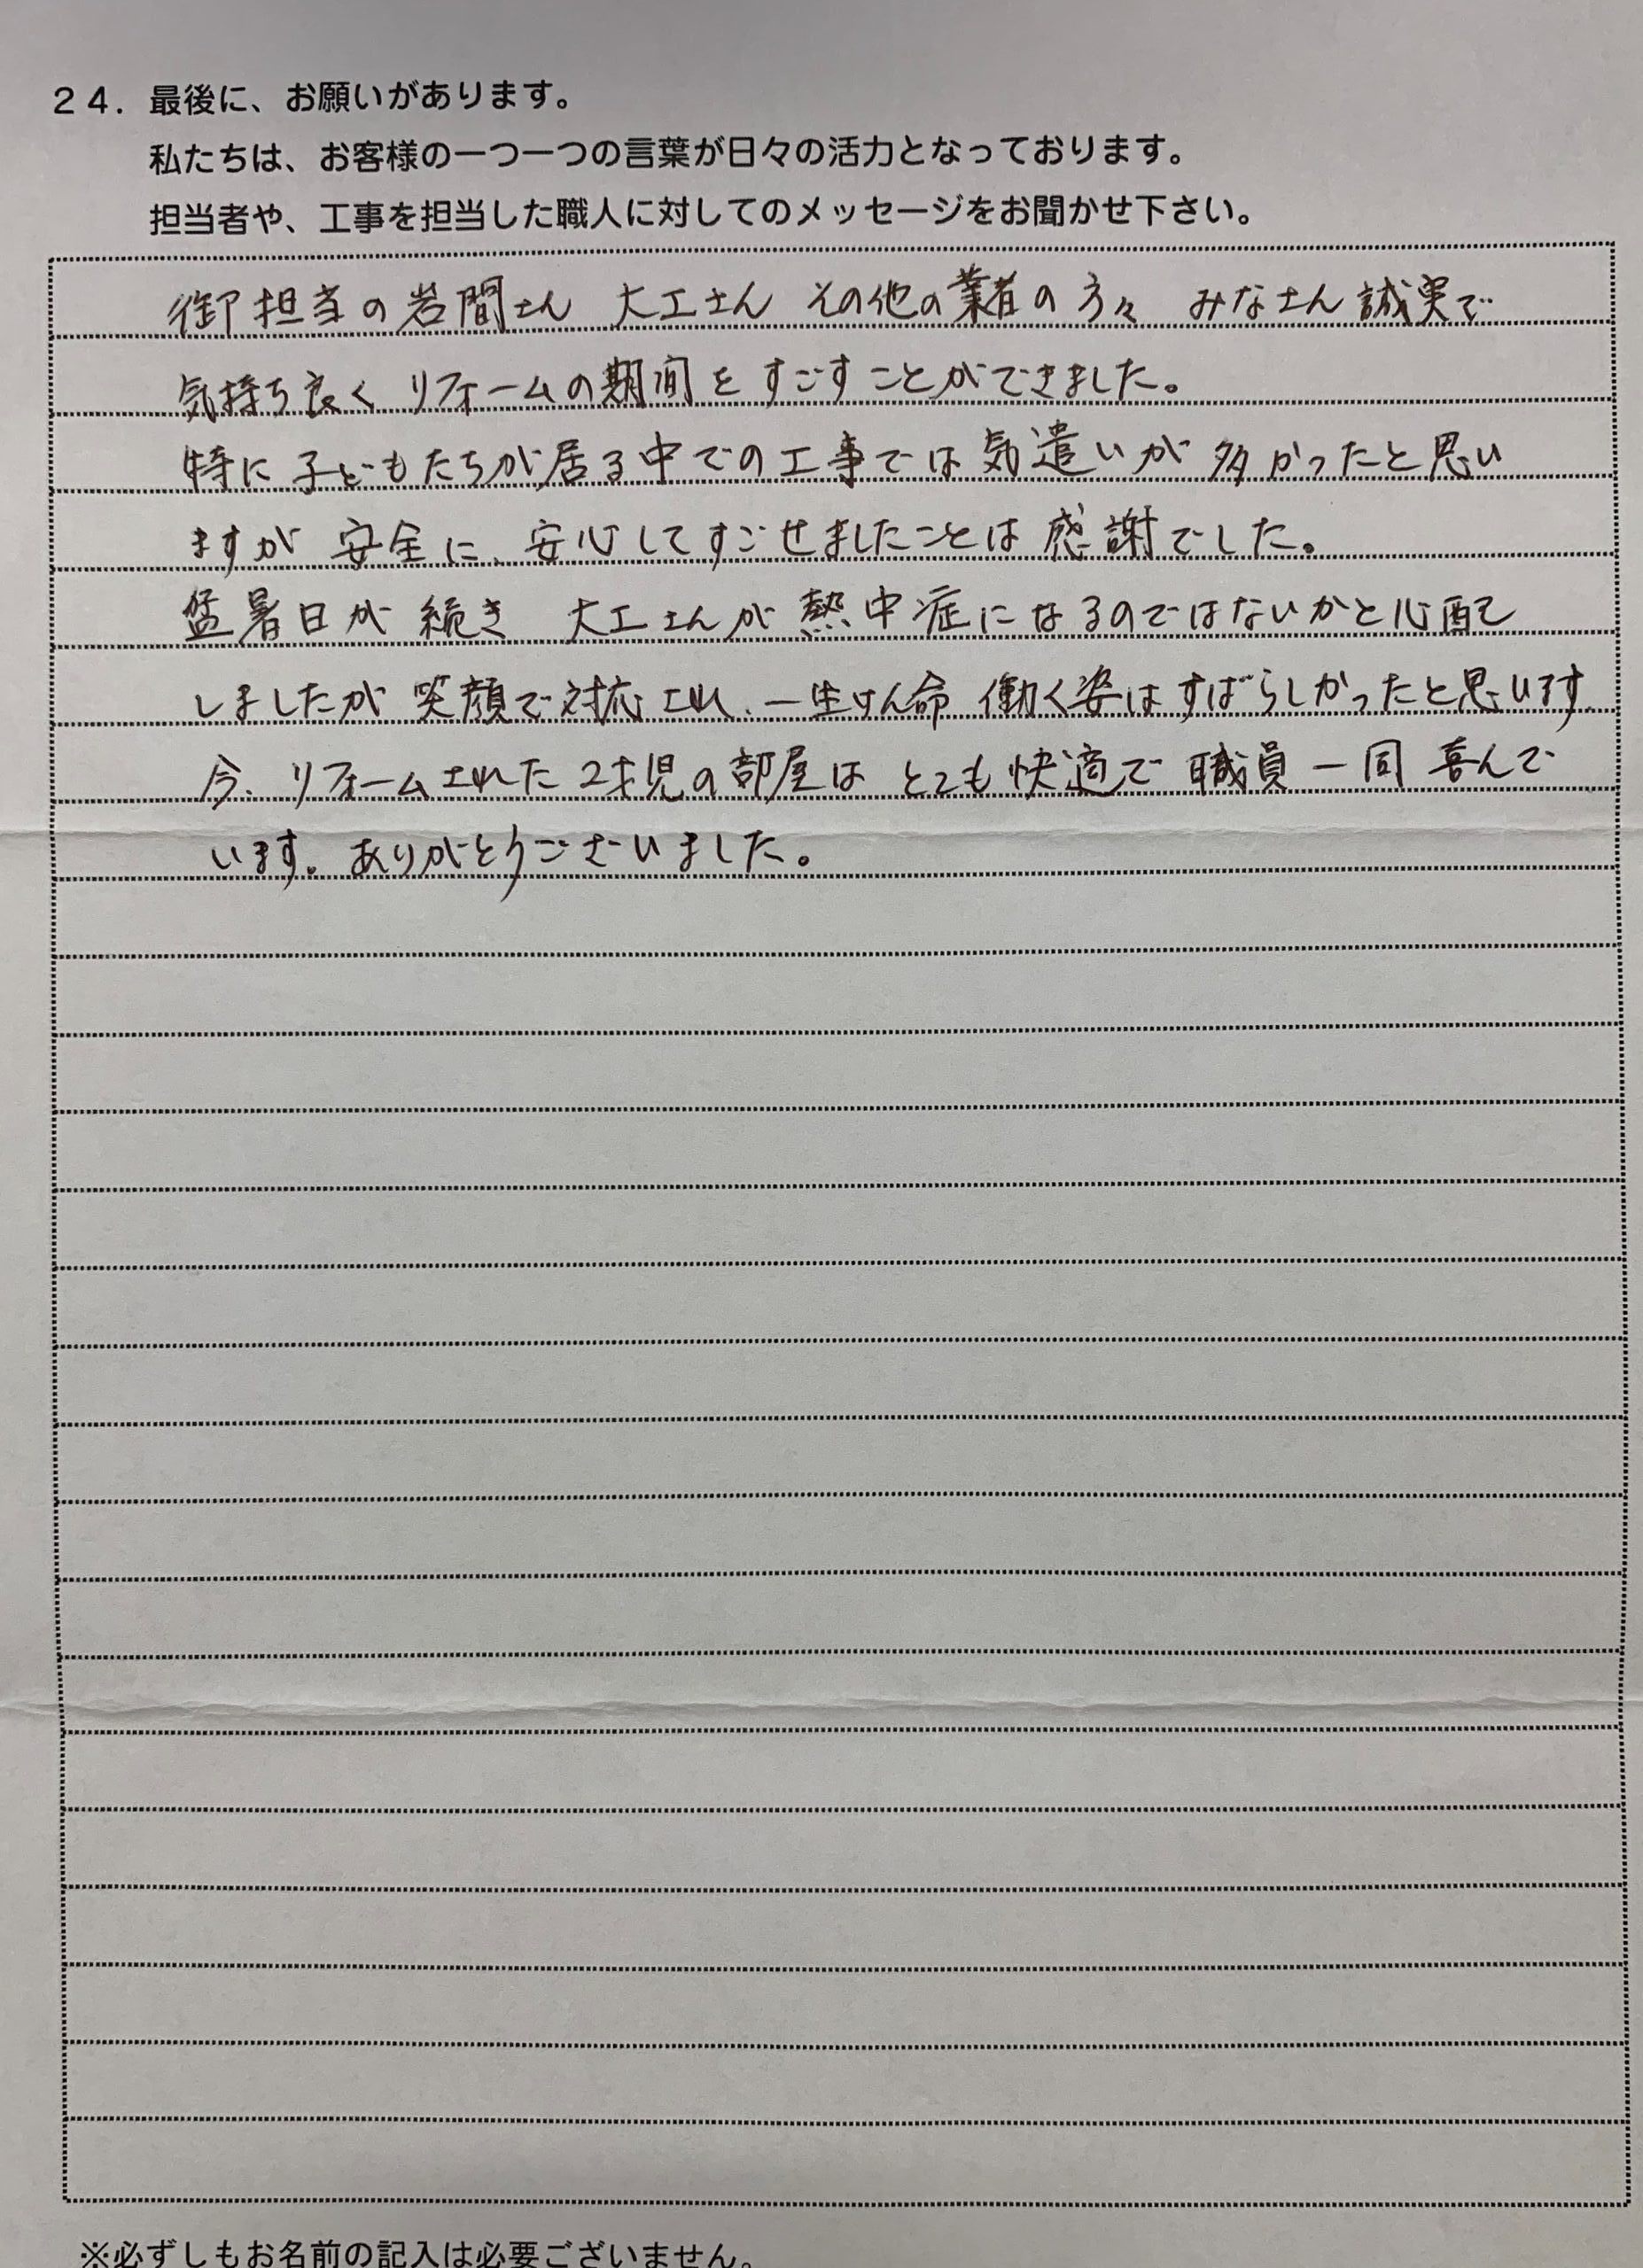 ２４．最後に、お願いがあります。
私たちは、お客様の一つ一つの言葉が日々の活力となっております。
担当者や、工事を担当した職人に対してのメッセージをお聞かせ下さい。
御担当の岩間さん 大工さん その他の業者の方々 みなさん誠実で
気持ち良く リフォームの期間を すごすことができました。
特に 子どもたちが居る中での工事では気遣いが 多かったと思い
ますが 安全に、安心してすごせましたことは 感謝でした。
猛暑日が 続き 大工さんが 熱中症になるのではないかと心配
しましたが 笑顔で対応され、一生けん命 働く姿はすばらしかったと思います
今、リフォームされた 2才児の部屋は とても快適で 職員一同 喜んで
います。ありがとうございました。
※必ずしもお名前の記入は必要ございません。